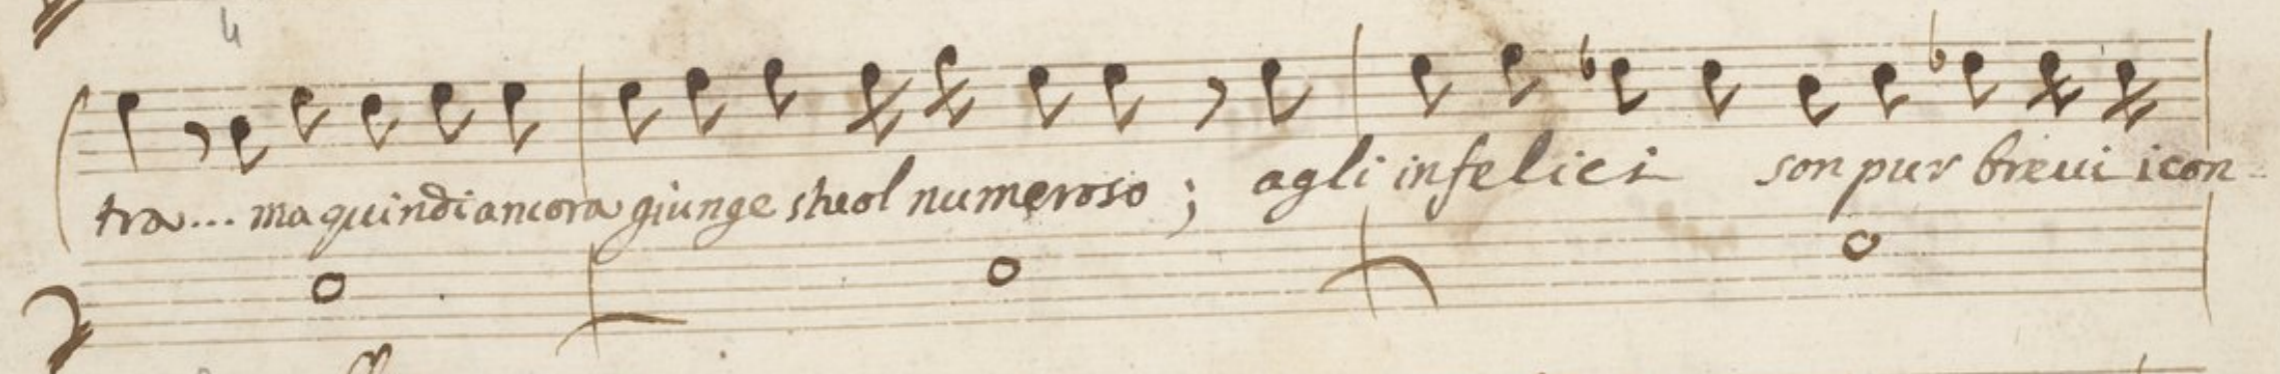 4
tra... ma quindi ancora giunge stuol numeroso; agli infelici son pur brevi i con-